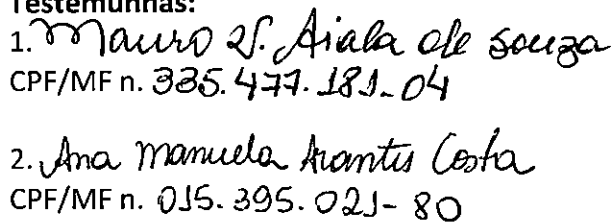 Testemunhas:
1. Mauro V. Aiala de Souza
CPF/MF n. 335.477.181-04
2. Ana Manuela Arantes Costa
CPF/MF n. 015.395.021-80